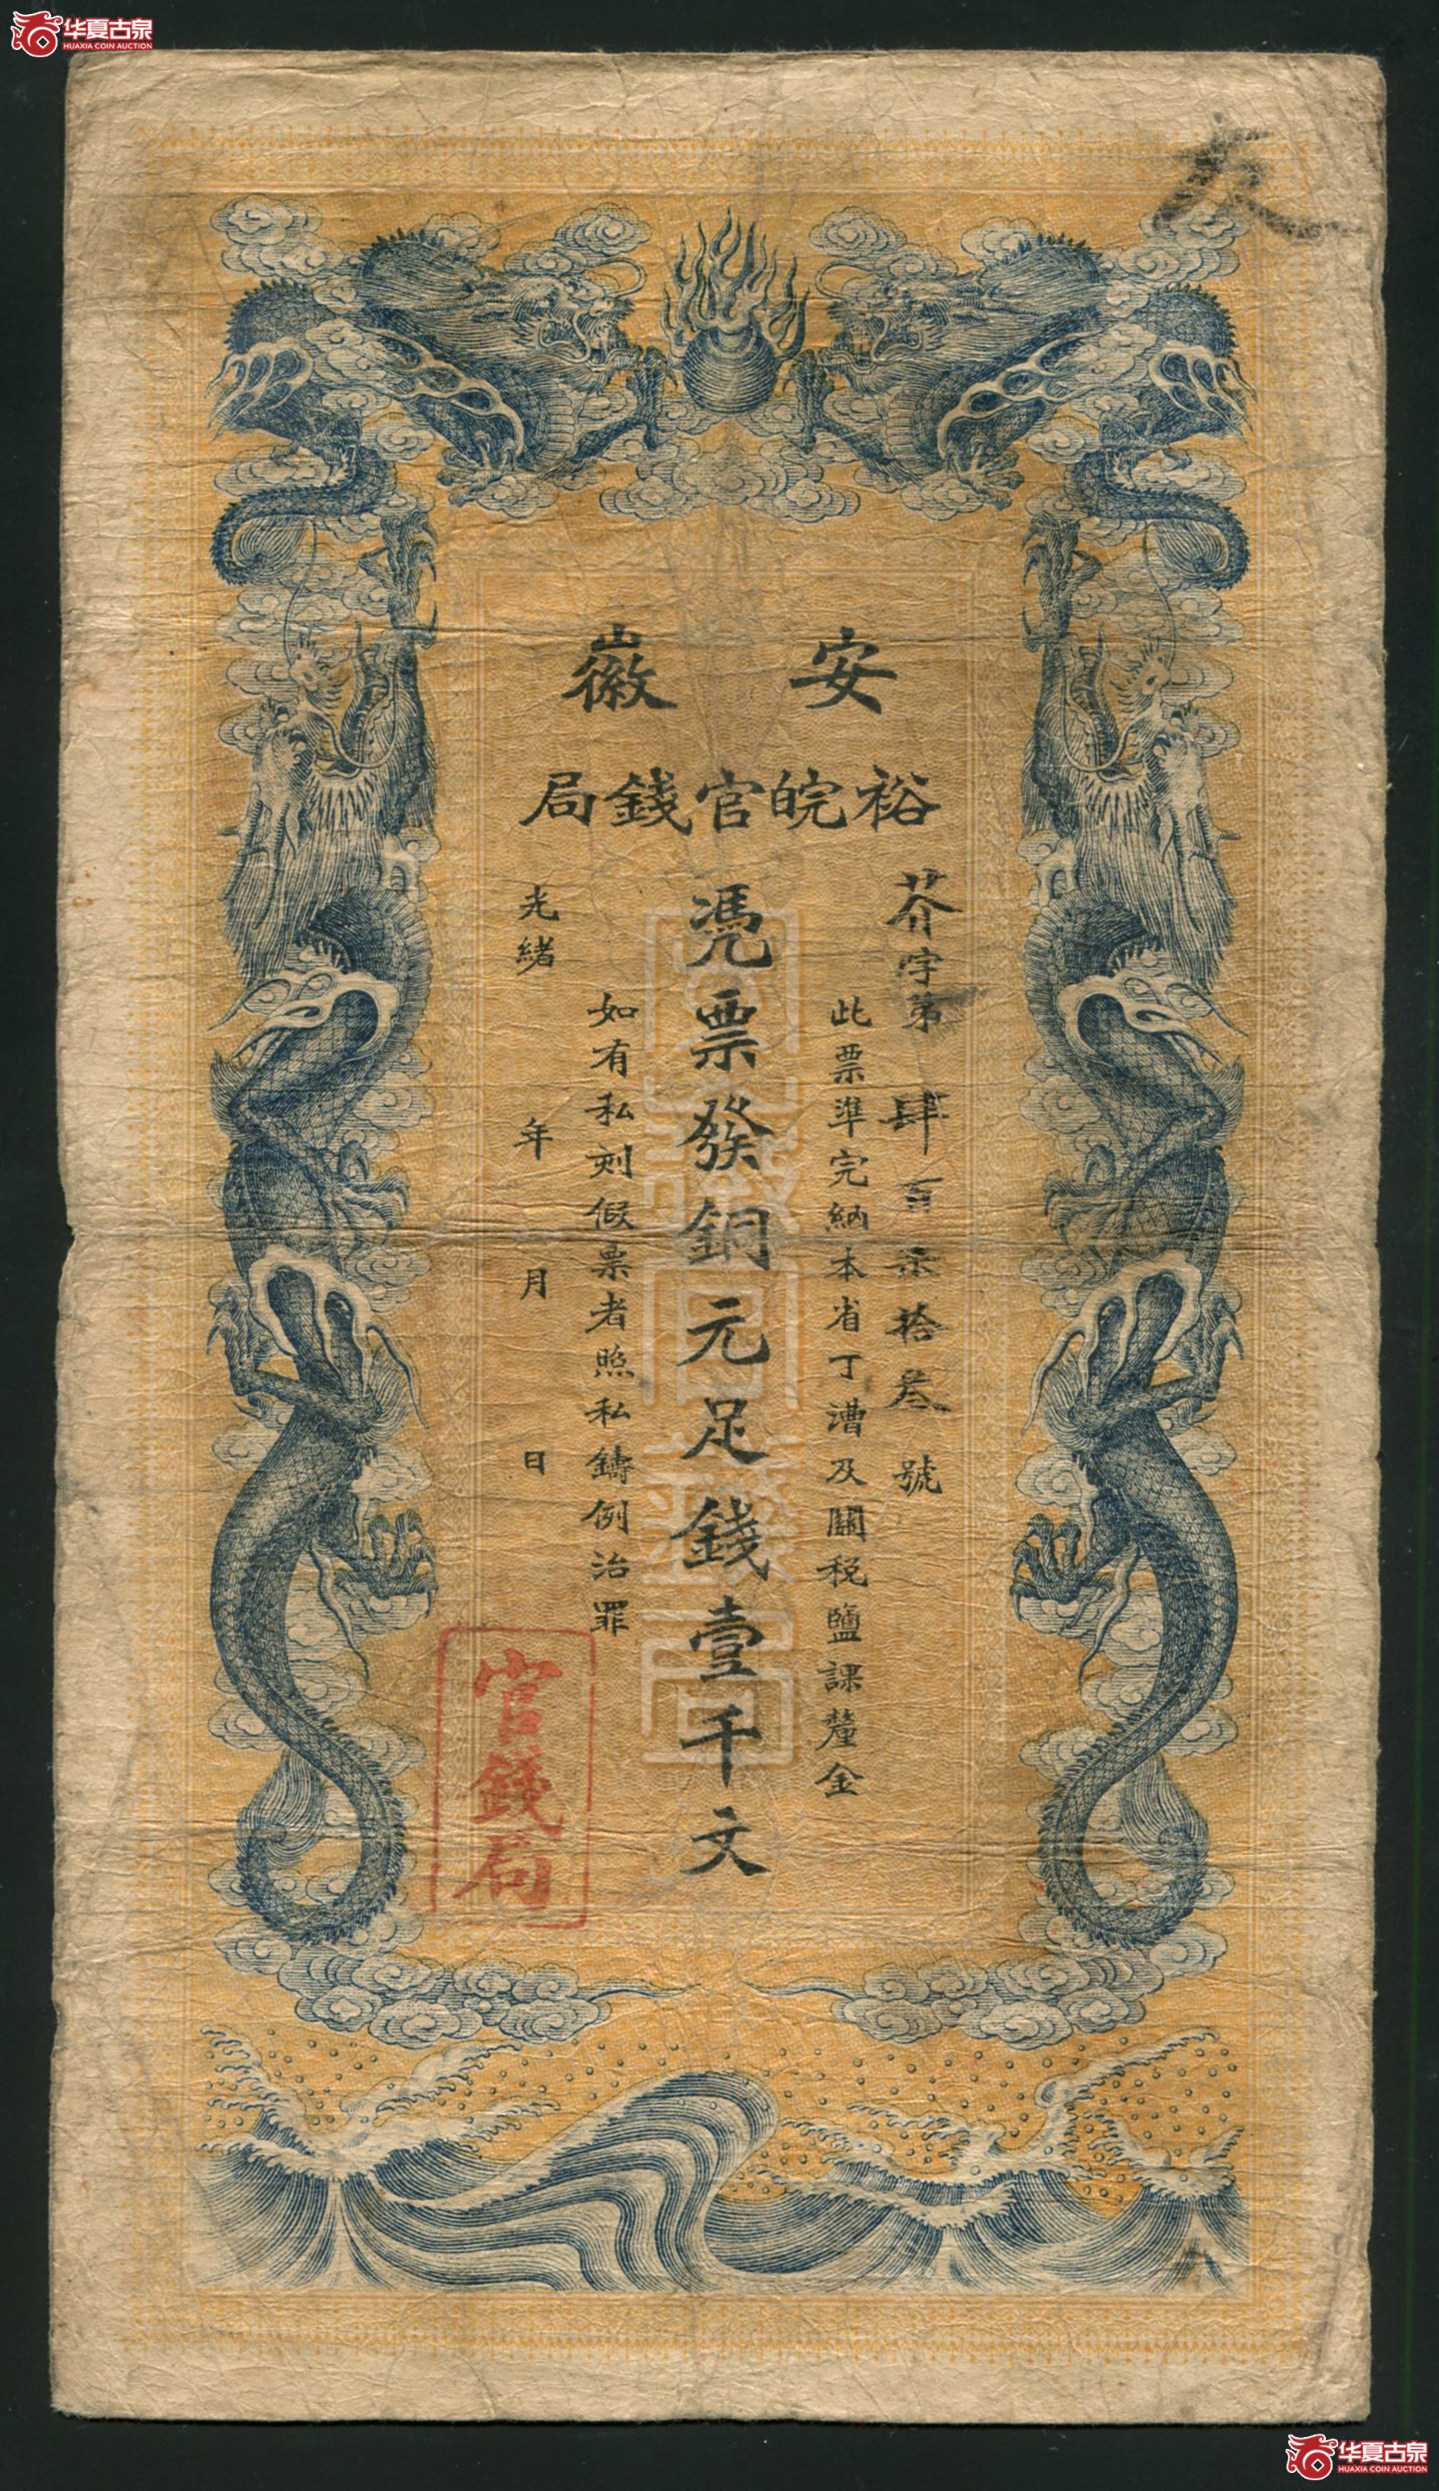 华夏古泉
HUAXIA COIN AUCTION
安徽
裕皖官錢局
芥字第肆百柒拾叁號
此票準完納本省丁漕及關稅鹽課釐金
憑票發銅元足錢壹千文
如有私刻假票者照私鑄例治罪
光緒 年 月 日
官錢局
华夏古泉
HUAXIA COIN AUCTION